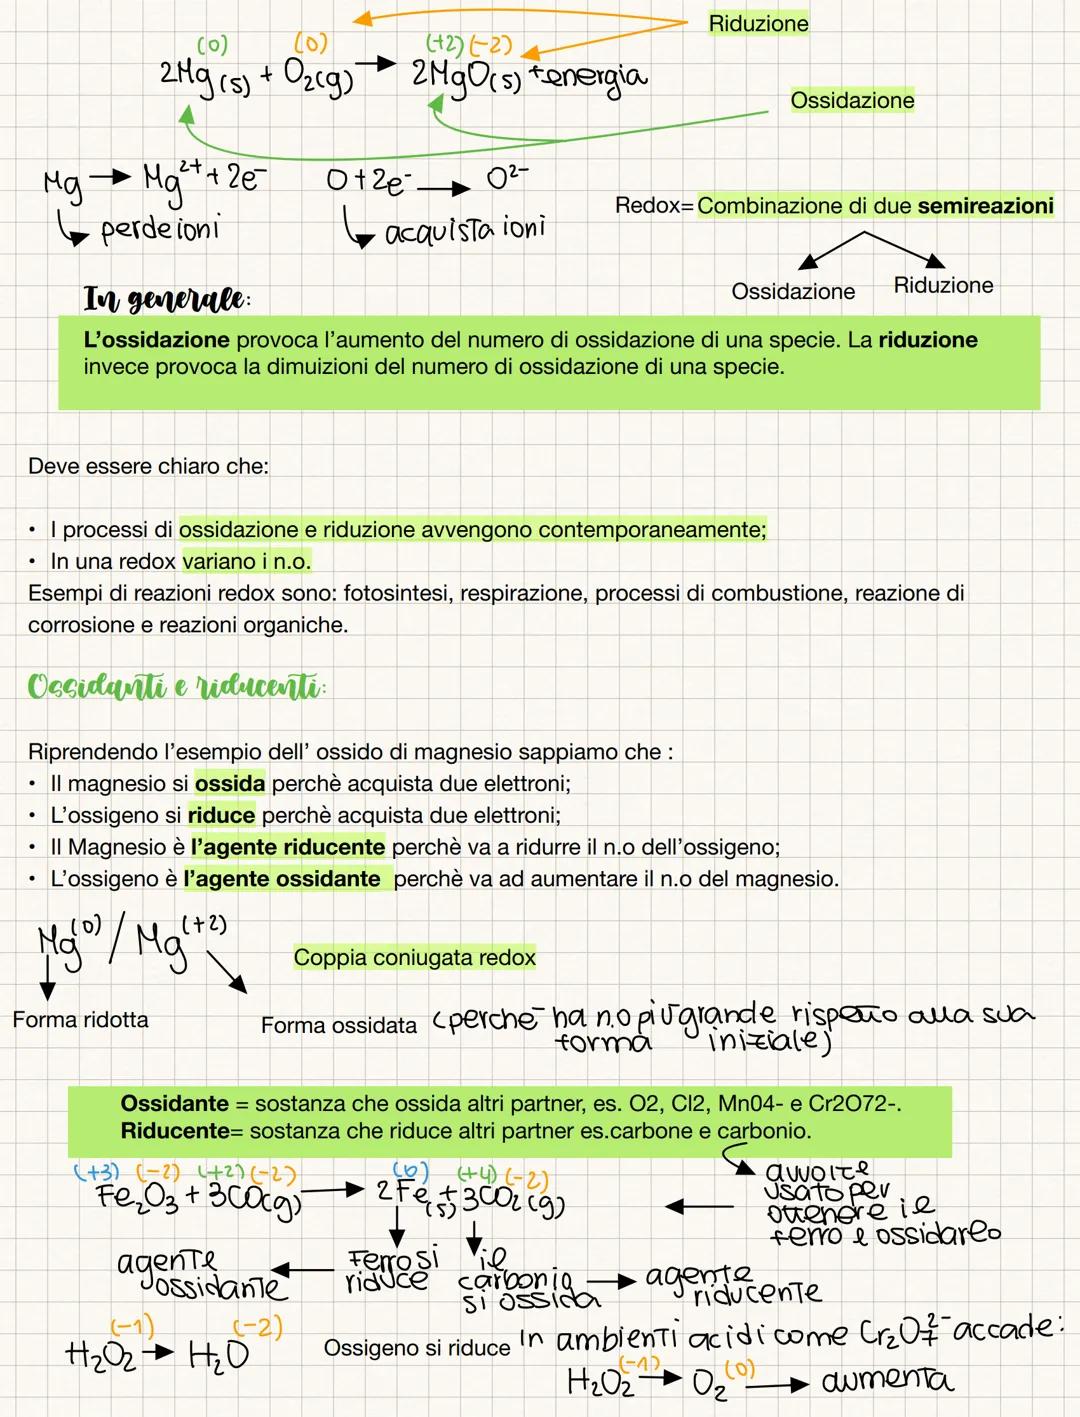 Riduzione
(0) (0) (+2) (-2)
2Mg(s) + O2(g) → 2MgO(s) + energia
Ossidazione
Mg → Mg2+ + 2e- O+2e- → O2-
perde ioni acquista ioni
Redox= Combinazione di due semireazioni
Ossidazione Riduzione
In generale:
L'ossidazione provoca l'aumento del numero di ossidazione di una specie. La riduzione
invece provoca la dimuizioni del numero di ossidazione di una specie.
Deve essere chiaro che:
• I processi di ossidazione e riduzione avvengono contemporaneamente;
• In una redox variano i n.o.
Esempi di reazioni redox sono: fotosintesi, respirazione, processi di combustione, reazione di
corrosione e reazioni organiche.
Ossidanti e riducenti:
Riprendendo l'esempio dell' ossido di magnesio sappiamo che :
• Il magnesio si ossida perchè acquista due elettroni;
• L'ossigeno si riduce perchè acquista due elettroni;
• Il Magnesio è l'agente riducente perchè va a ridurre il n.o dell'ossigeno;
• L'ossigeno è l'agente ossidante perchè va ad aumentare il n.o del magnesio.
Mg(0) / Mg(+2)
Coppia coniugata redox
Forma ridotta
Forma ossidata (perche ha n.o più grande rispetto alla sua
forma iniziale)
Ossidante = sostanza che ossida altri partner, es. O2, Cl2, Mn04- e Cr2O72-.
Riducente= sostanza che riduce altri partner es.carbone e carbonio.
(+3) (-2) (+2) (-2) (0) (+4) (-2)
Fe2O3 + 3CO(g) → 2Fe(s) + 3CO2(g)
avvolte
usato per
ottenere il
ferro e ossidarlo
agente
ossidante
Ferro si
riduce
il
carbonio
si ossida
agente
riducente
(-1) (-2)
H2O2 → H2O
Ossigeno si riduce
In ambienti acidi come Cr2O7 2- accade:
(-1) (0)
H2O2 → O2 → aumenta